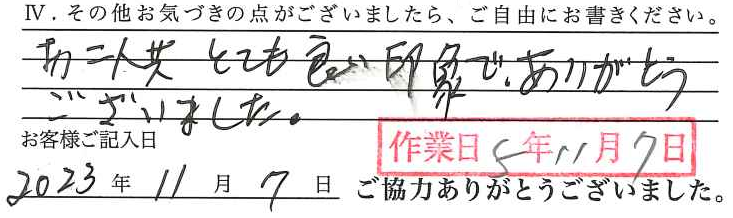 Ⅳ．その他お気づきの点がございましたら、ご自由にお書きください。
お二人共 とても良い印象で、ありがとう
ございました。
お客様ご記入日
作業日 5年11月7日
2023年11月7日 ご協力ありがとうございました。